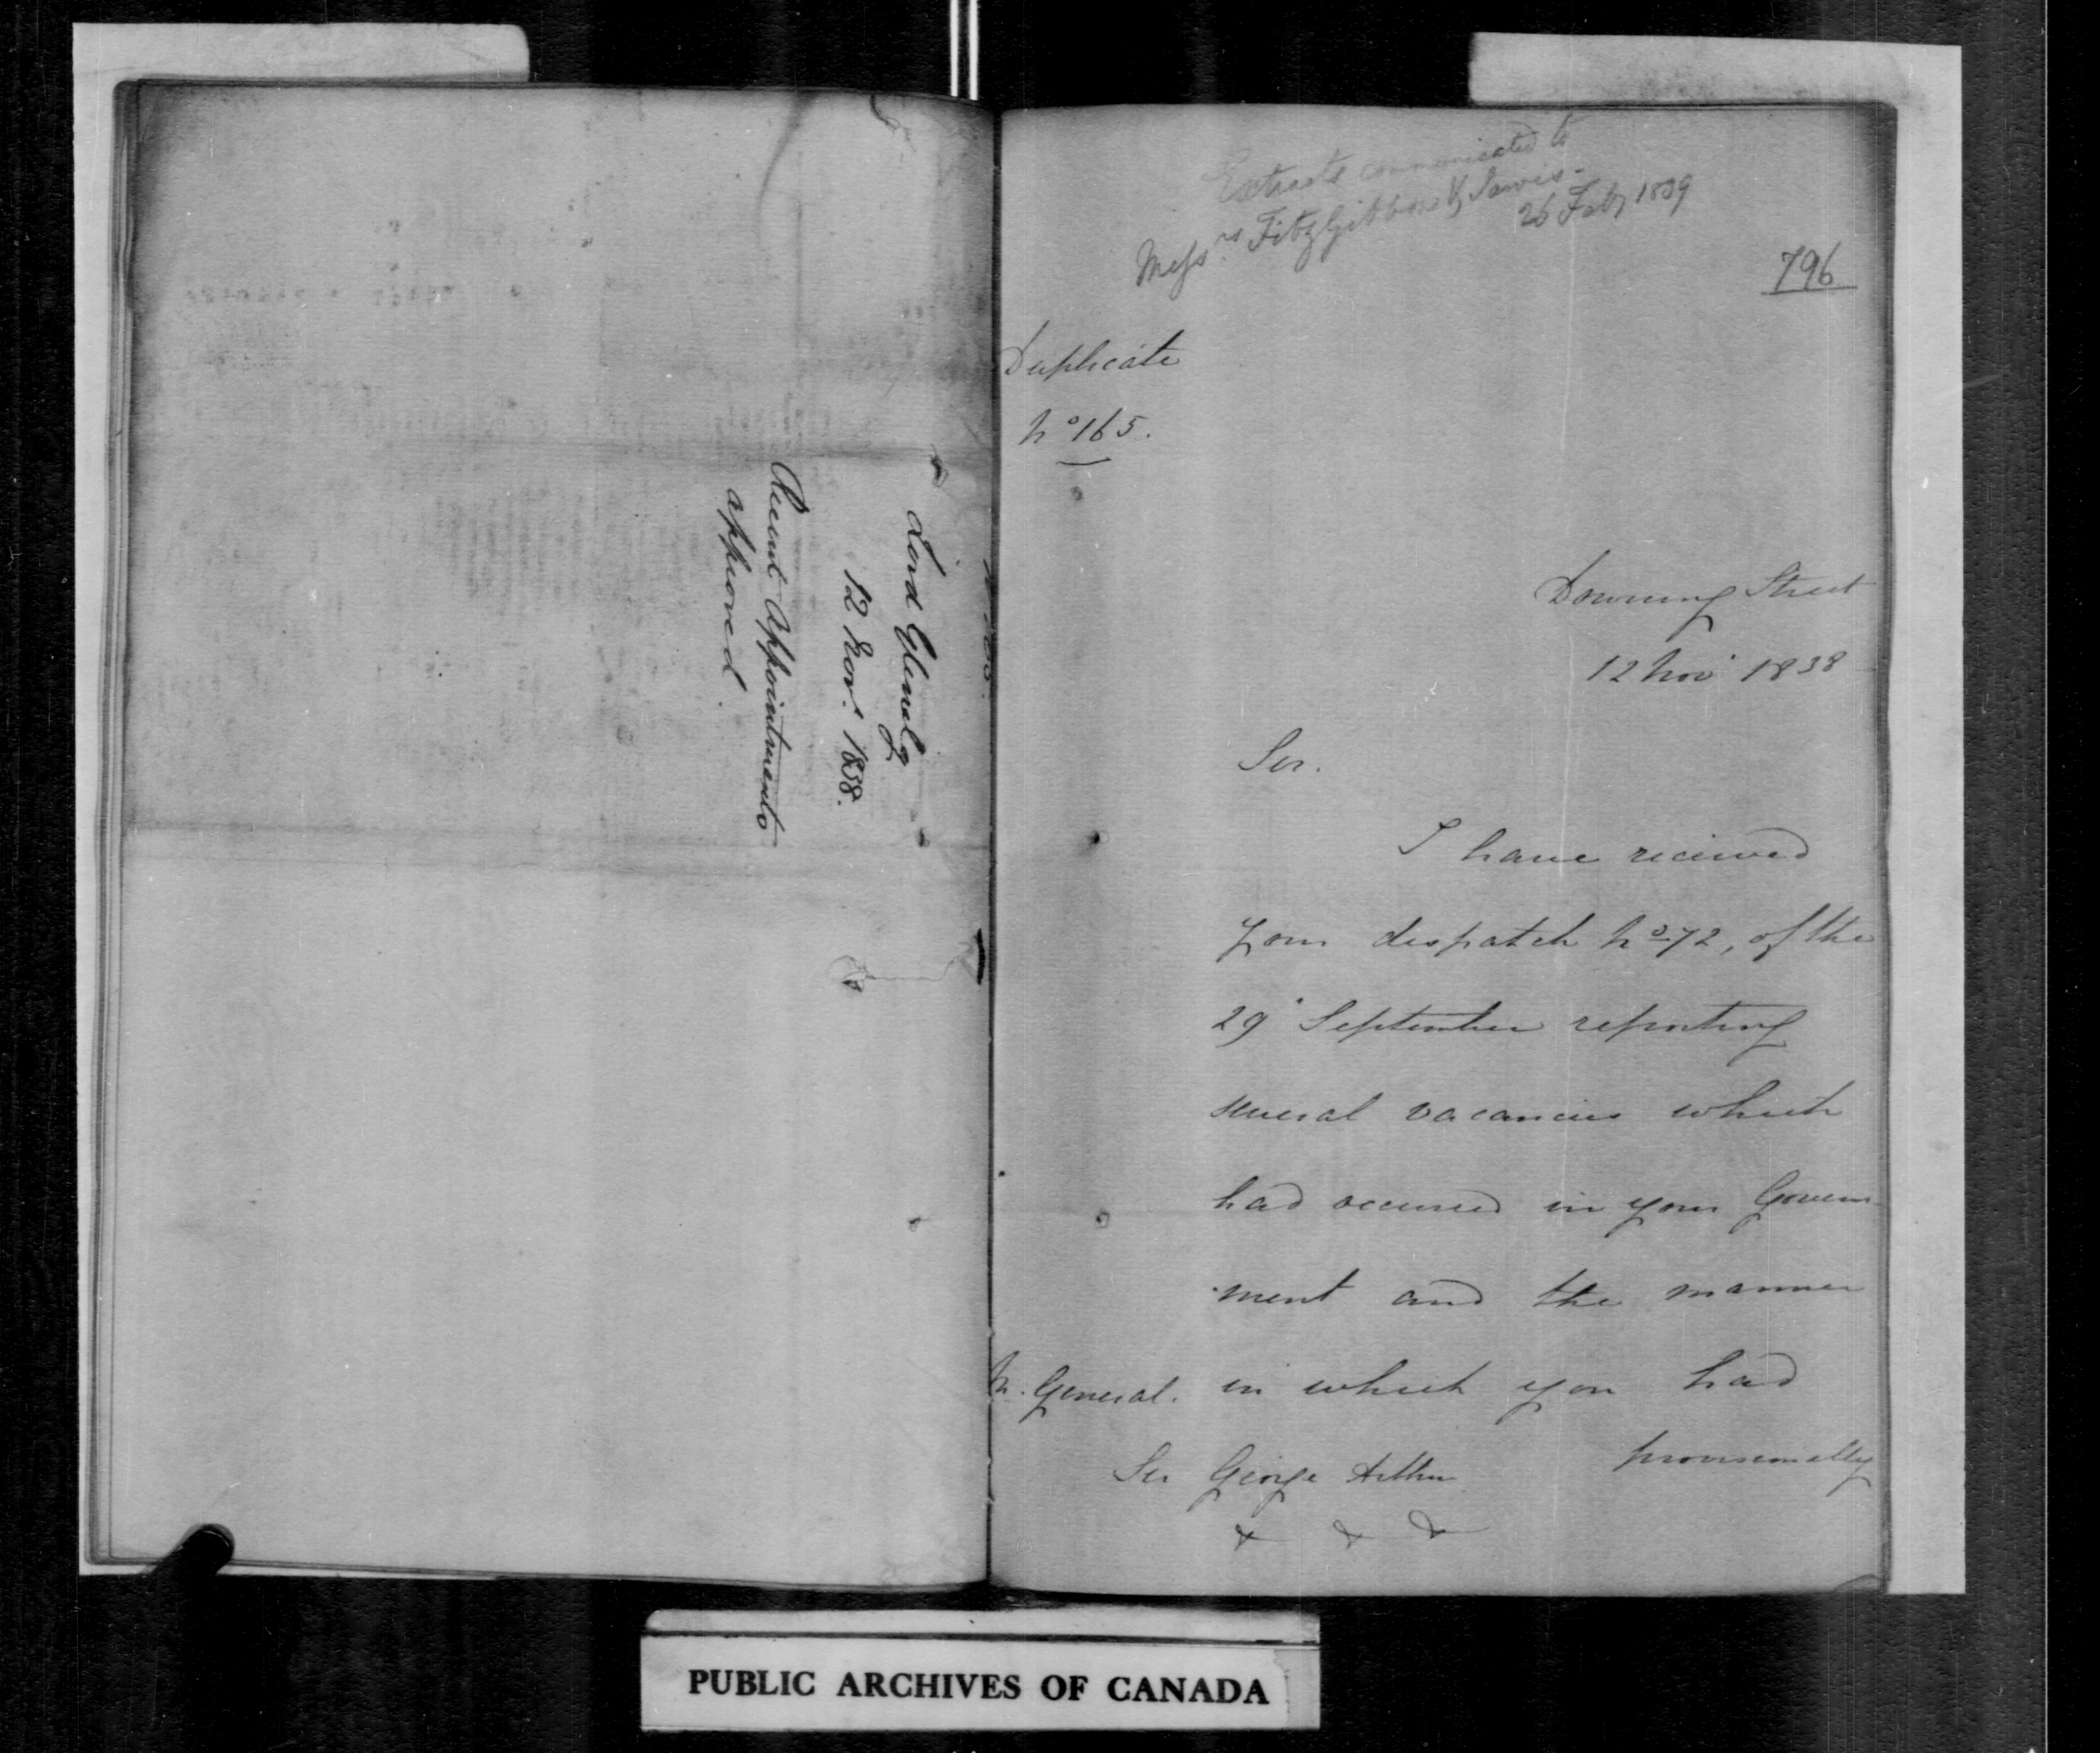 Lord Glenelg
12 Nov.r 1838.
Recent Appointments
approved.
Extracts communicated to
Messrs. FitzGibbon &
26 Feby 1839
796
Duplicate
No 165.
Downing Street
12 Nov 1838
Sir.
I have received
your dispatch No 72, of the
29 September reporting
several vacancies which
had occurred in your Govern
ment and the manner
in which you had
provisionally
M. General.
Sir George Arthur
& & &
PUBLIC ARCHIVES OF CANADA